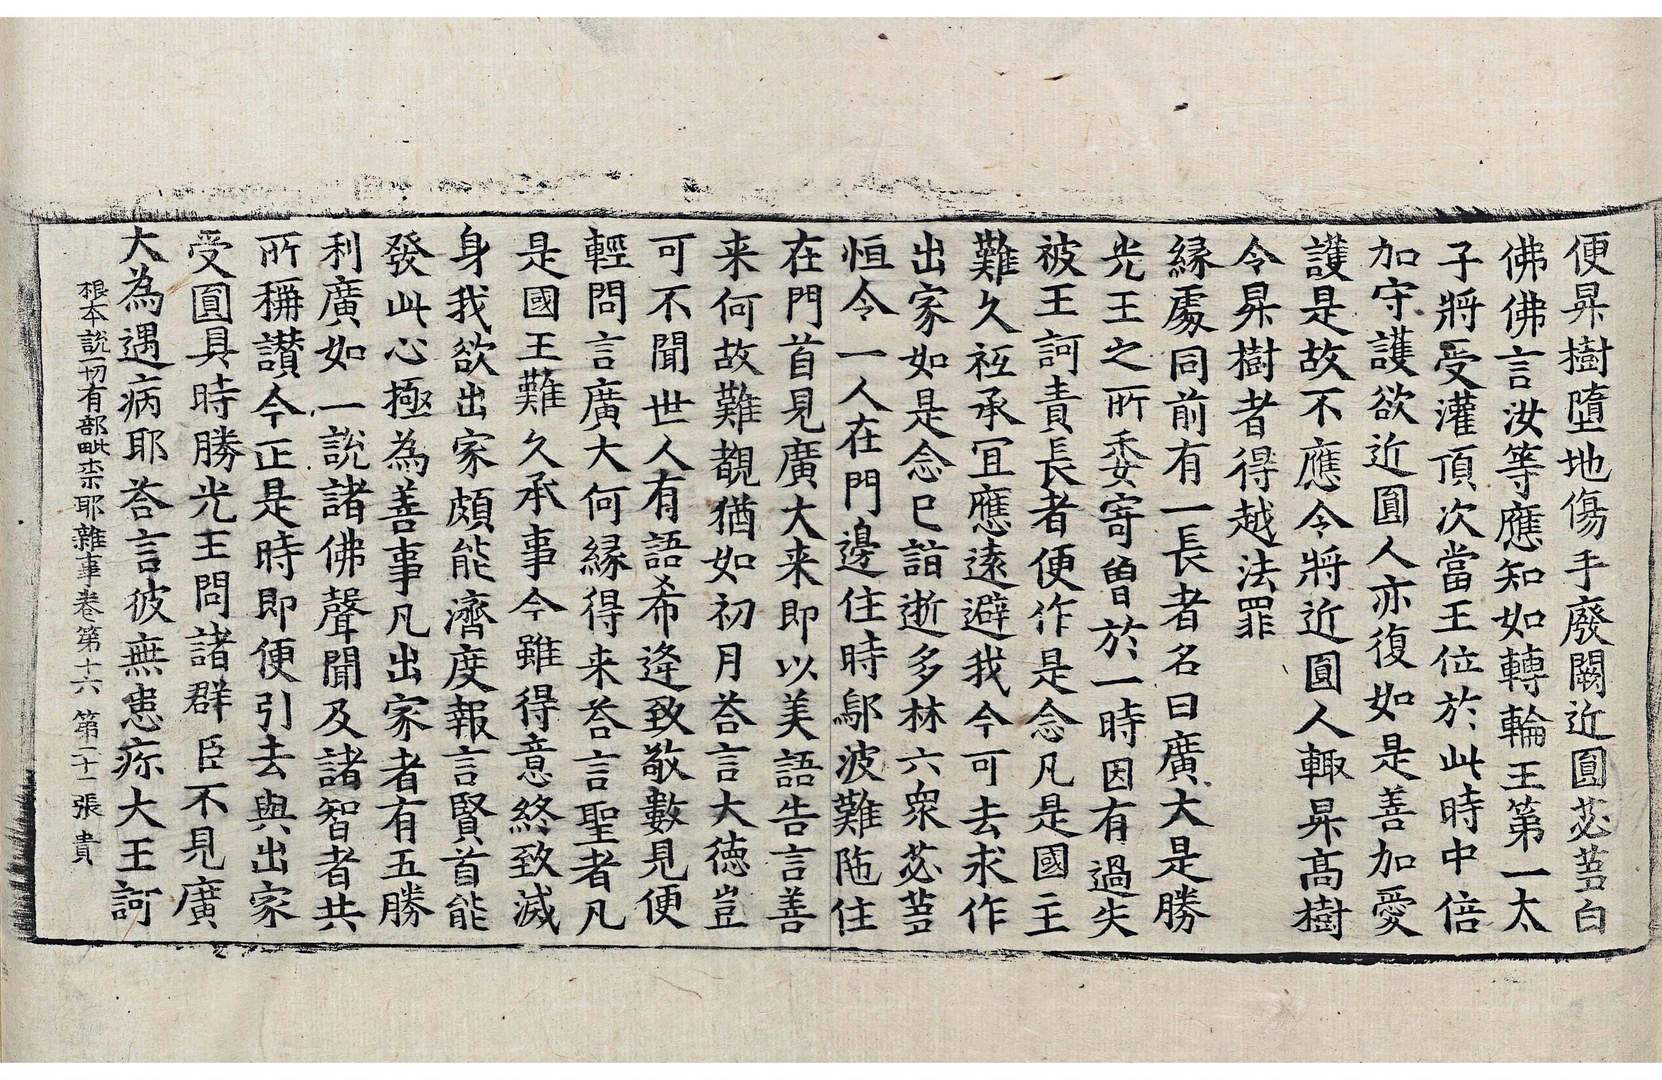 便昇樹墮地傷手廢闕近圓苾蒭白
佛佛言汝等應知如轉輪王第一太
子將受灌頂次當王位於此時中倍
加守護欲近圓人亦復如是善加愛
護是故不應令將近圓人輙昇髙樹
令昇樹者得越法罪
緣處同前有一長者名曰廣大是勝
光王之所委寄曾於一時因有過失
被王訶責長者便作是念凡是國主
難久祇承冝應遠避我今可去求作
出家如是念已詣逝多林六衆苾蒭
恒令一人在門邊住時鄔波難陁住
在門首見廣大来即以美語告言善
来何故難覩猶如初月荅言大德豈
可不聞世人有語希逢致敬數見便
輕問言廣大何緣得来荅言聖者凡
是國王難久承事今雖得意終致滅
身我欲出家頗能濟度報言賢首能
發此心極為善事凡出家者有五勝
利廣如一說諸佛聲聞及諸智者共
所稱讚今正是時即便引去與出家
受圓具時勝光王問諸群臣不見廣
大為遇病耶荅言彼無患㾀大王訶
根本說一切有部毗奈耶雜事卷第十六 第二十張 貴